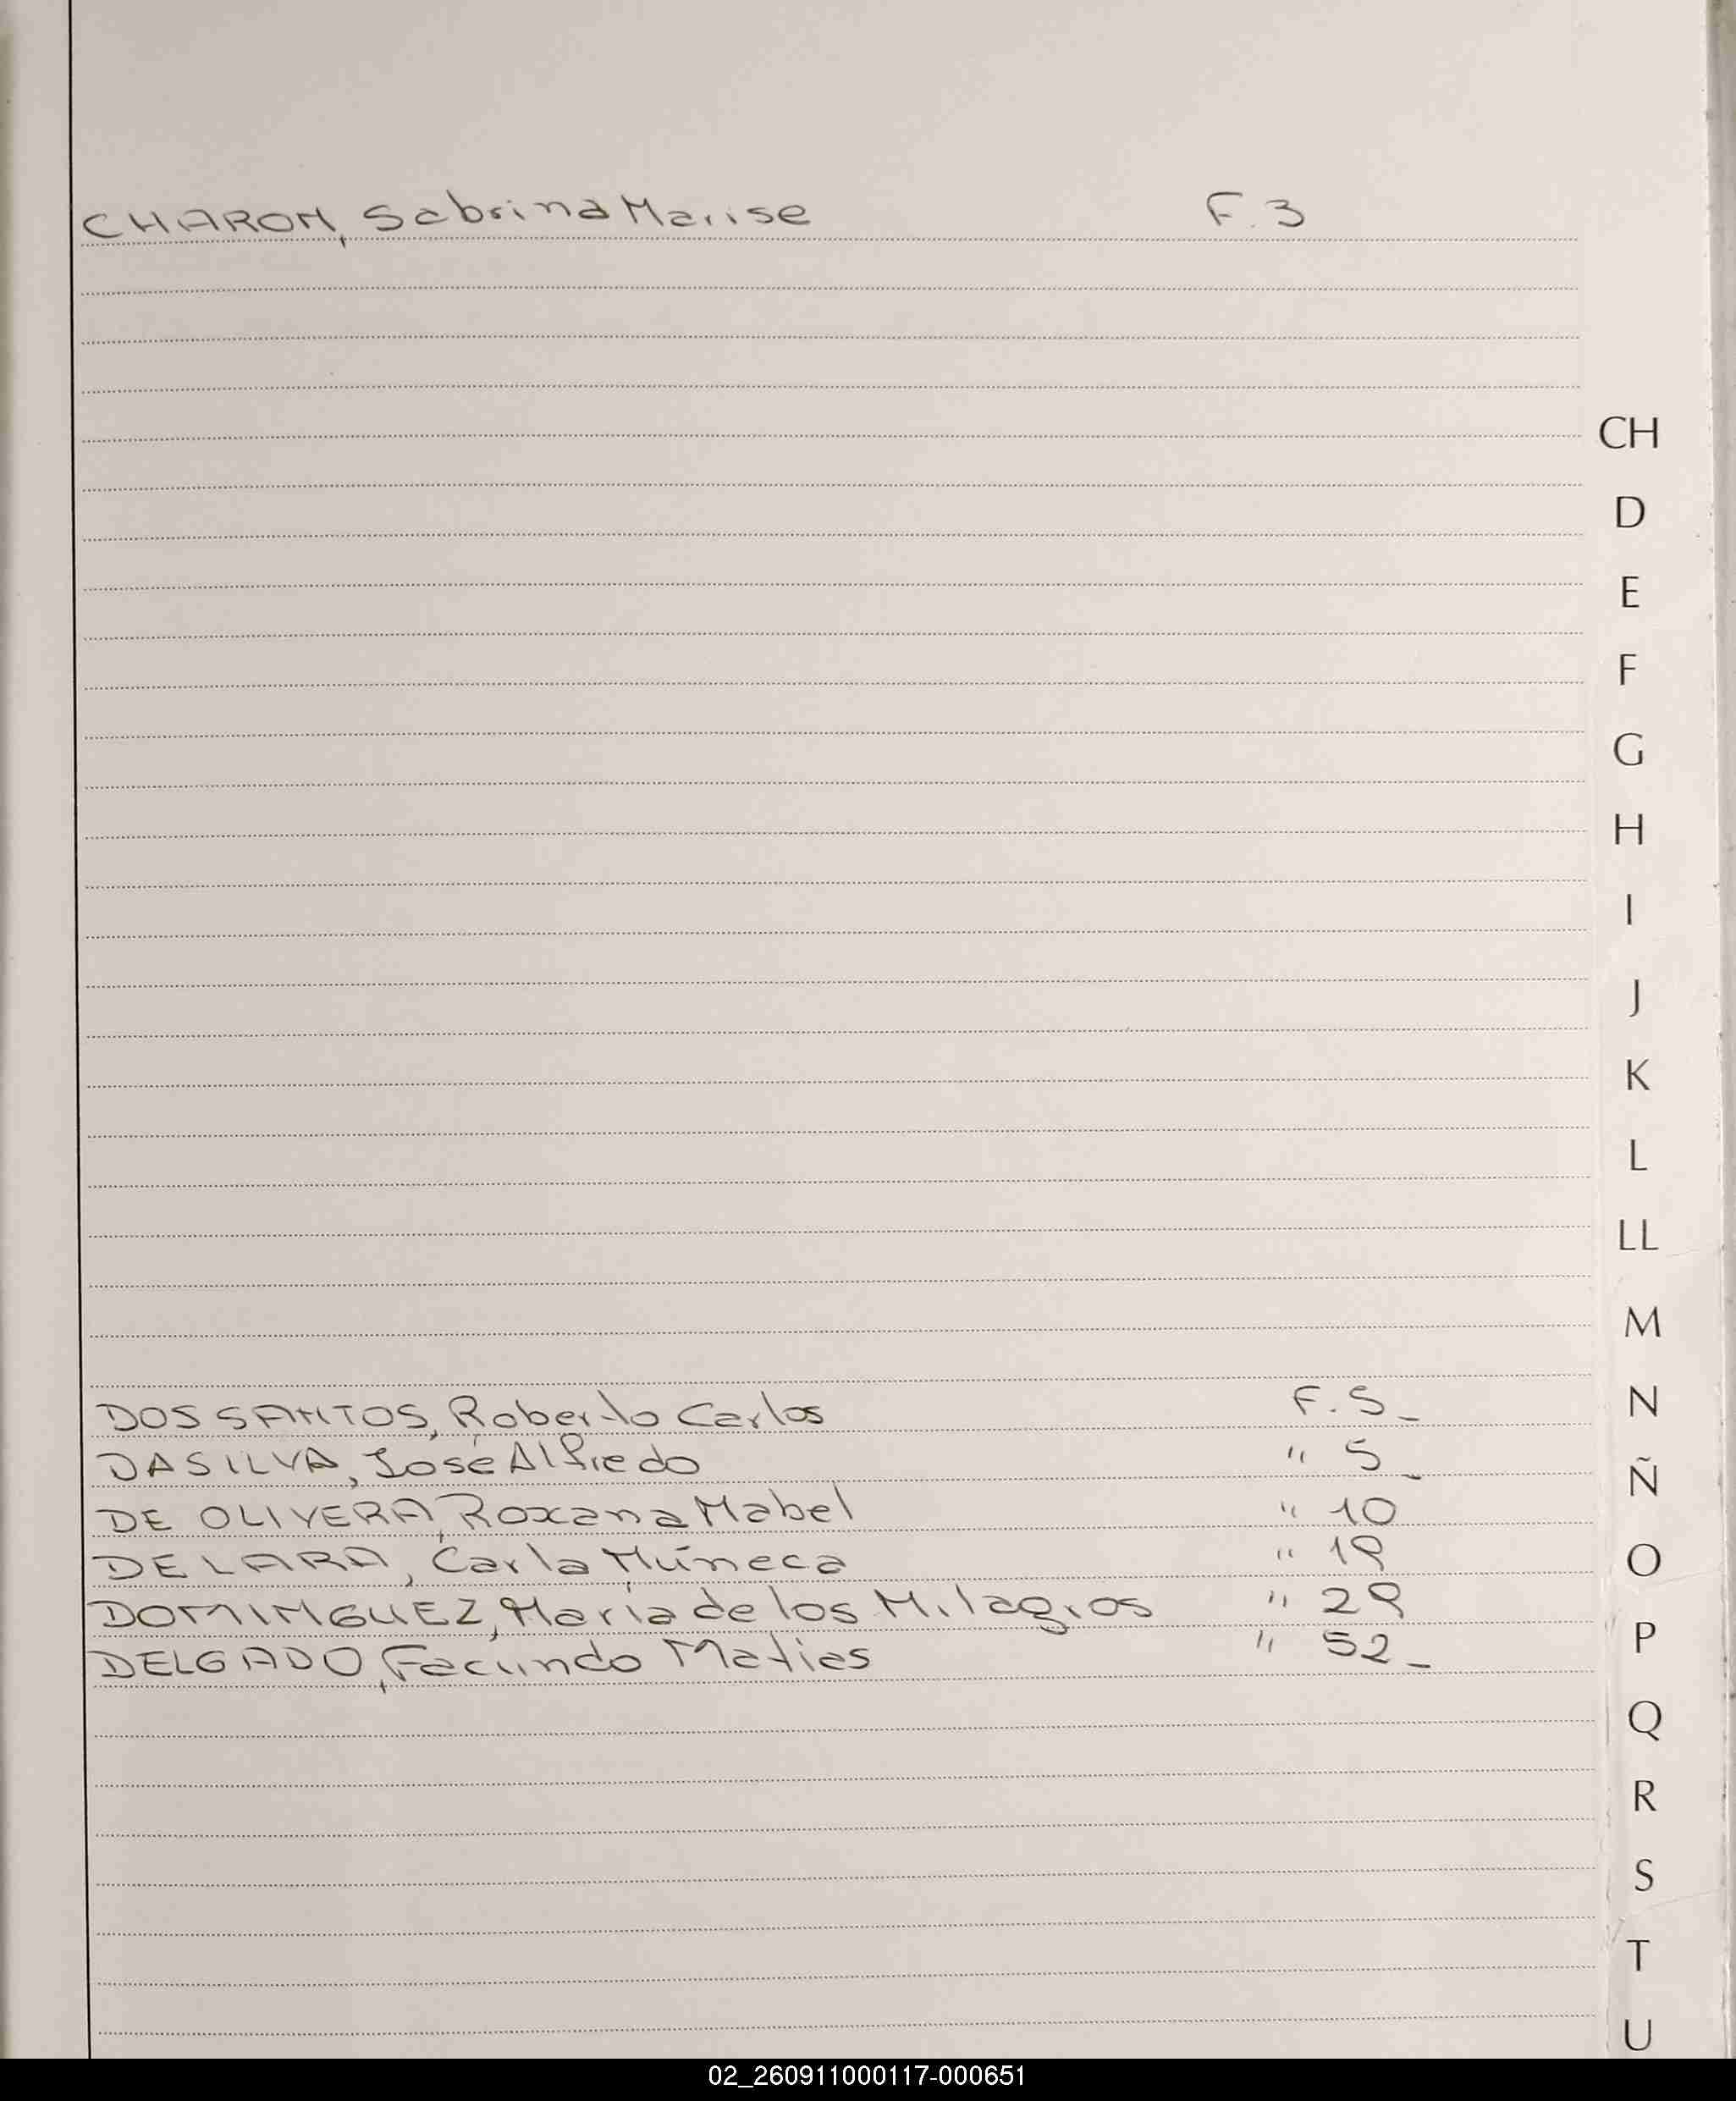 CHARON, Sabrina Marise F. 3
CH
D
E
F
G
H
I
J
K
L
LL
M
DOS SANTOS, Roberto Carlos F. 5_
N
DASILVA, José Alfredo " 5_
Ñ
DE OLIVERA, Roxana Mabel " 10
DE LARA, Carla Muneca " 19
O
DOMINGUEZ, María de los Milagros " 29
P
DELGADO, Facundo Matias " 52_
Q
R
S
T
U
02_260911000117-000651